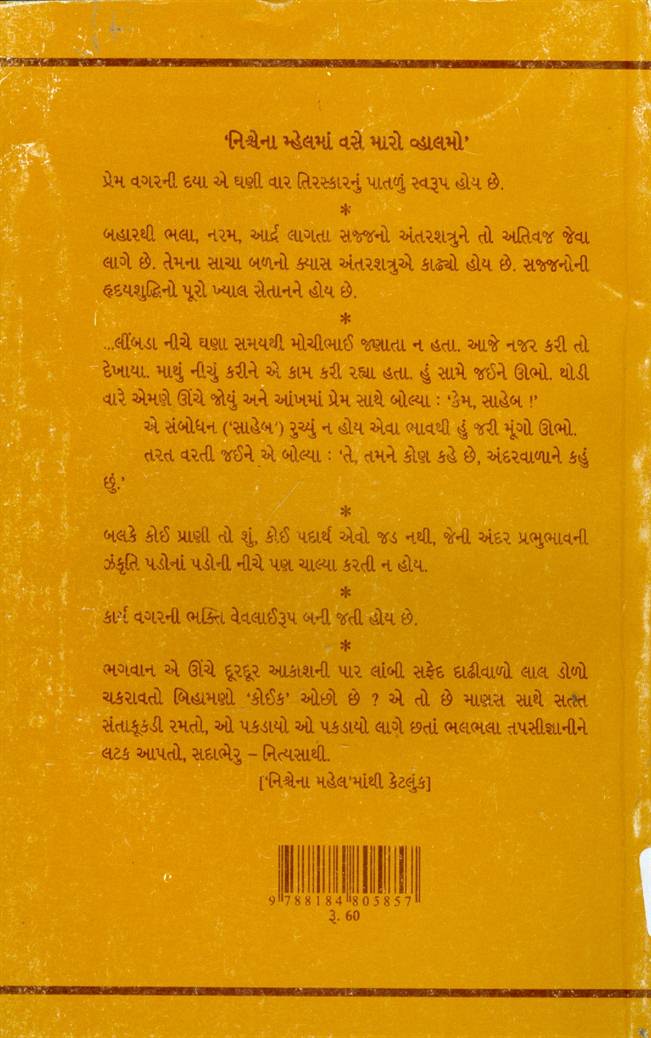 ‘નિશ્ચેના મ્હેલમાં વસે મારો વ્હાલમો’
પ્રેમ વગરની દયા એ ઘણી વાર તિરસ્કારનું પાતળું સ્વરૂપ હોય છે.
*
બહારથી ભલા, નરમ, આર્દ્ર લાગતા સજ્જનો અંતરશત્રુને તો અતિવજ્ર જેવા
લાગે છે. તેમના સાચા બળનો ક્યાસ અંતરશત્રુએ કાઢ્યો હોય છે. સજ્જનોની
હૃદયશુદ્ધિનો પૂરો ખ્યાલ સેતાનને હોય છે.
*
...લીંબડા નીચે ઘણા સમયથી મોચીભાઈ જણાતા ન હતા. આજે નજર કરી તો
દેખાયા. માથું નીચું કરીને એ કામ કરી રહ્યા હતા. હું સામે જઈને ઊભો. થોડી
વારે એમણે ઊંચે જોયું અને આંખમાં પ્રેમ સાથે બોલ્યા : ‘કેમ, સાહેબ !’
એ સંબોધન (‘સાહેબ’) રુચ્યું ન હોય એવા ભાવથી હું જરી મૂંગો ઊભો.
તરત વરતી જઈને એ બોલ્યા : ‘તે, તમને કોણ કહે છે, અંદરવાળાને કહું
છું.’
*
બલકે કોઈ પ્રાણી તો શું, કોઈ પદાર્થ એવો જડ નથી, જેની અંદર પ્રભુભાવની
ઝંકૃતિ પડોનાં પડોની નીચે પણ ચાલ્યા કરતી ન હોય.
*
કાર્ય વગરની ભક્તિ વેવલાઈરૂપ બની જતી હોય છે.
*
ભગવાન એ ઊંચે દૂરદૂર આકાશની પાર લાંબી સફેદ દાઢીવાળો લાલ ડોળો
ચકરાવતો બિહામણો ‘કોઈક’ ઓછો છે ? એ તો છે માણસ સાથે સતત
સંતાકૂકડી રમતો, ઓ પકડાયો ઓ પકડાયો લાગે છતાં ભલભલા તપસીજ્ઞાનીને
લટક આપતો, સદાભેરુ – નિત્યસાથી.
[‘નિશ્ચેના મહેલ’માંથી કેટલુંક]
9 788184 805857
રૂ. 60